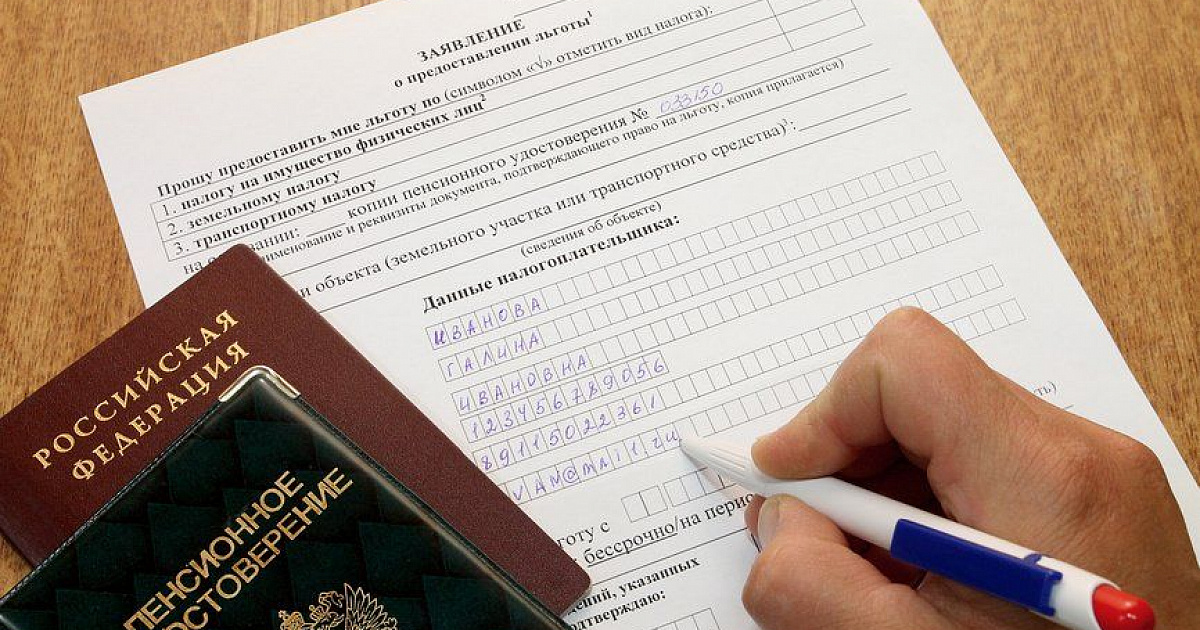 ЗАЯВЛЕНИЕ
о предоставлении льготы¹
Прошу предоставить мне льготу по (символом «√» отметить вид налога):
1. налогу на имущество физических лиц²
2. земельному налогу
3. транспортному налогу
на основании: копии пенсионного удостоверения № 033150
именование и реквизиты документа, подтверждающего право на льготу, копия прилагается)
и объекта (земельного участка или транспортного средства)³:
(сведения об объекте)
Данные налогоплательщика:
ИВАНОВА
ГАЛИНА
ИВАНОВНА
123456789056
89115022361
VAN@mail.ru
ть)
готу с
бессрочно/на перио
ений, указанных
дтверждаю:
РОССИЙСКАЯ
ФЕДЕРАЦИЯ
ПЕНСИОННОЕ
ОСТОВЕРЕНИЕ